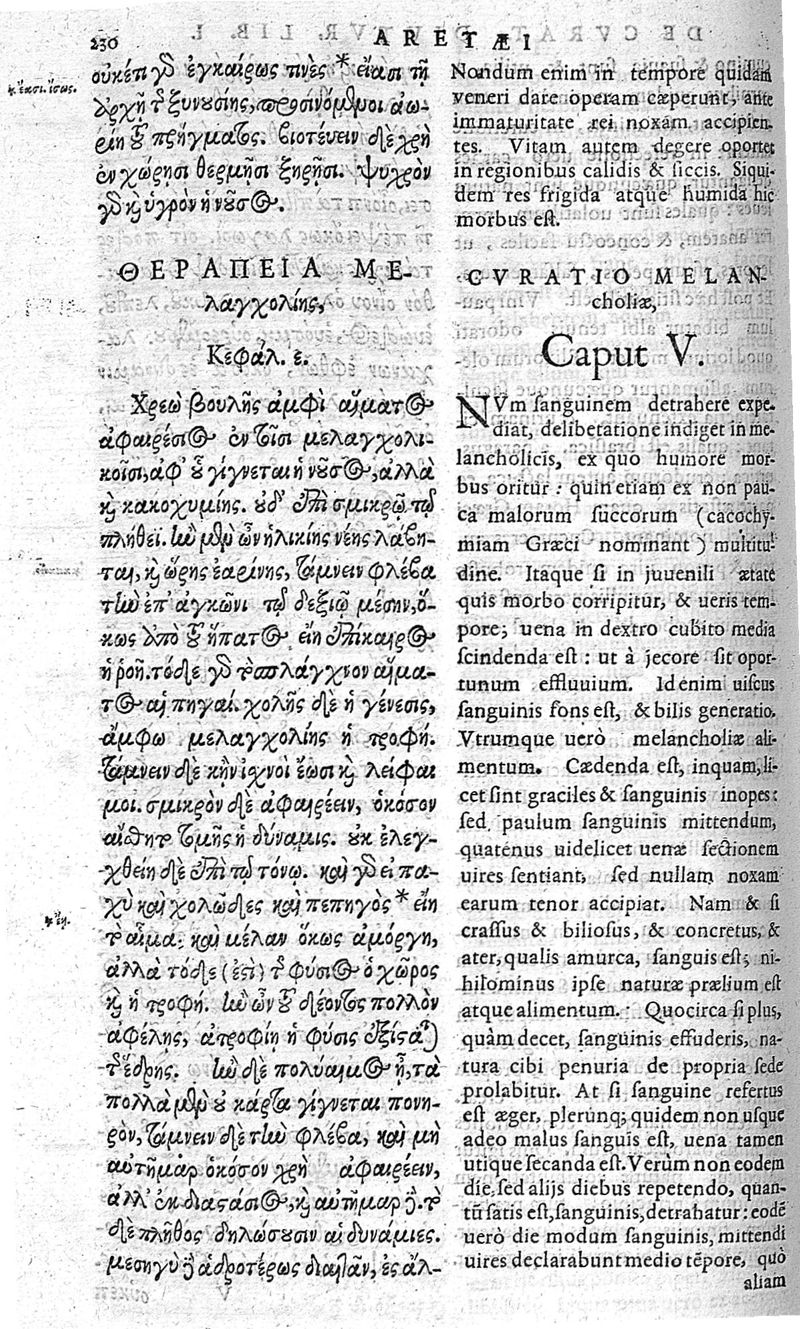 230
ARETÆI
οὐκέπι γὸ ἐγκαίρως τινὲς * εἴασι τῇ
*ἔασι. ἴσως.
ἀρχῇ τ ξυνουσίης, προσινόμενοι ἀω-
ρίῃ τοῦ πρήγματος. βιοτεύειν δὲ χρὴ
ἐν χώρῃσι θερμῇσι ξηρῇσι. ψυχρὸν
γὸ καὶ ὑγρὸν ἡ νοῦσος.
ΘΕΡΑΠΕΙΑ ΜΕ-
λαγχολίης,
Κεφάλ. ε.
Χρεὼ βουλῆς ἀμφὶ αἵματος
ἀφαιρέσιος ἐν τοῖσι μελαγχολι-
κοῖσι, ἀφ' οὗ γίγνεται ἡ νοῦσος, ἀλλὰ
καὶ κακοχυμίης. οὐδ' ἐπὶ σμικρῷ τῷ
πλήθεϊ. ἢν μὲν ὦν ἡλικίης νέης λάβη-
ται, καὶ ὥρης ἐαρίνης, τάμνειν φλέβα
τὴν ἐπ' ἀγκῶνι τῷ δεξιῷ μέσην, ὅ-
κως ἀπὸ τοῦ ἥπατος εἴη ἐπίκαιρος
ἡ ῥοή. τόδε γὸ τὸ σπλάγχνον αἵμα-
τος αἱ πηγαί. χολῆς δὲ ἡ γένεσις,
ἄμφω μελαγχολίης ἡ τροφή.
τάμνειν δὲ κἢν ἰχνοὶ ἔωσι καὶ λείφαι
μοι. σμικρὸν δὲ ἀφαιρέειν, ὁκόσον
αἴσθητ τομῆς ἡ δύναμις. οὐκ ἐλεγ-
χθείη δὲ ἐπὶ τῷ τόνῳ. καὶ γὸ εἰ πα-
χὺ καὶ χολῶδες καὶ πεπηγὸς * εἴη
*ἔῃ.
τὸ αἷμα. καὶ μέλαν ὅκως ἀμόργη,
ἀλλὰ τόδε (ἐστὶ) τ φύσιος ὁ χῶρος
καὶ ἡ τροφή. ἢν ὦν τοῦ δέοντος πολλὸν
ἀφέλῃς, ἀτροφίῃ ἡ φύσις ἐξίσταται
τ ἕδρης. ἢν δὲ πολύαιμος ᾖ, τὰ
πολλὰ μὲν οὐ κάρτα γίγνεται πονη-
ρὸν, τάμνειν δὲ τὴν φλέβα, καὶ μὴ
αὐτῆμαρ ὁκόσον χρὴ ἀφαιρέειν,
ἀλλ' ἐκ διαστάσιος, καὶ αὐτῆμαρ δέ. τὸ
δὲ πλῆθος δηλώσουσιν αἱ δυνάμιες.
μεσηγὺ δὲ ἁδροτέρως διαιτᾶν, ἐς ἄλ-
Nondum enim in tempore quidam
veneri dare operam cæperunt, ante
immaturitate rei noxam accipien-
tes. Vitam autem degere oportet
in regionibus calidis & siccis. Siqui-
dem res frigida atque humida hic
morbus est.
CVRATIO MELAN-
choliæ,
Caput V.
NVm sanguinem detrahere expe-
diat, delibetatione indiget in me-
lancholicis, ex quo humore mor-
bus oritur: quin etiam ex non pau-
ca malorum succorum (cacochy-
miam Græci nominant) multitu-
dine. Itaque si in juuenili ætate
quis morbo corripitur, & ueris tem-
pore; uena in dextro cubito media
scindenda est: ut à jecore sit opor-
tunum effluuium. Id enim uiscus
sanguinis fons est, & bilis generatio.
Vtrumque uerò melancholiæ ali-
mentum. Cædenda est, inquam, li-
cet sint graciles & sanguinis inopes:
sed paulum sanguinis mittendum,
quatenus uidelicet uenæ sectionem
uires sentiant, sed nullam noxam
earum tenor accipiat. Nam & si
crassus & biliosus, & concretus, &
ater, qualis amurca, sanguis est; ni-
hilominus ipse naturæ prælium est
atque alimentum. Quocirca si plus,
quàm decet, sanguinis effuderis, na-
tura cibi penuria de propria sede
prolabitur. At si sanguine refertus
est æger, plerunq; quidem non usque
adeo malus sanguis est, uena tamen
utique secanda est. Verùm non eodem
die, sed alijs diebus repetendo, quan-
tũ satis est, sanguinis, detrahatur: eodẽ
uerò die modum sanguinis, mittendi
uires declarabunt medio tẽpore, quò
aliam